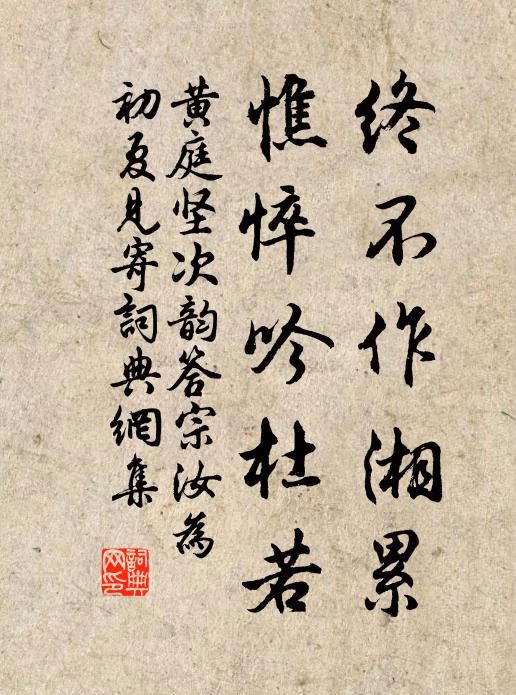 终不作湘累
憔悴吟杜若
黄庭坚次韵答宗汝為
初夏見寄詞典網集
詞典
网印